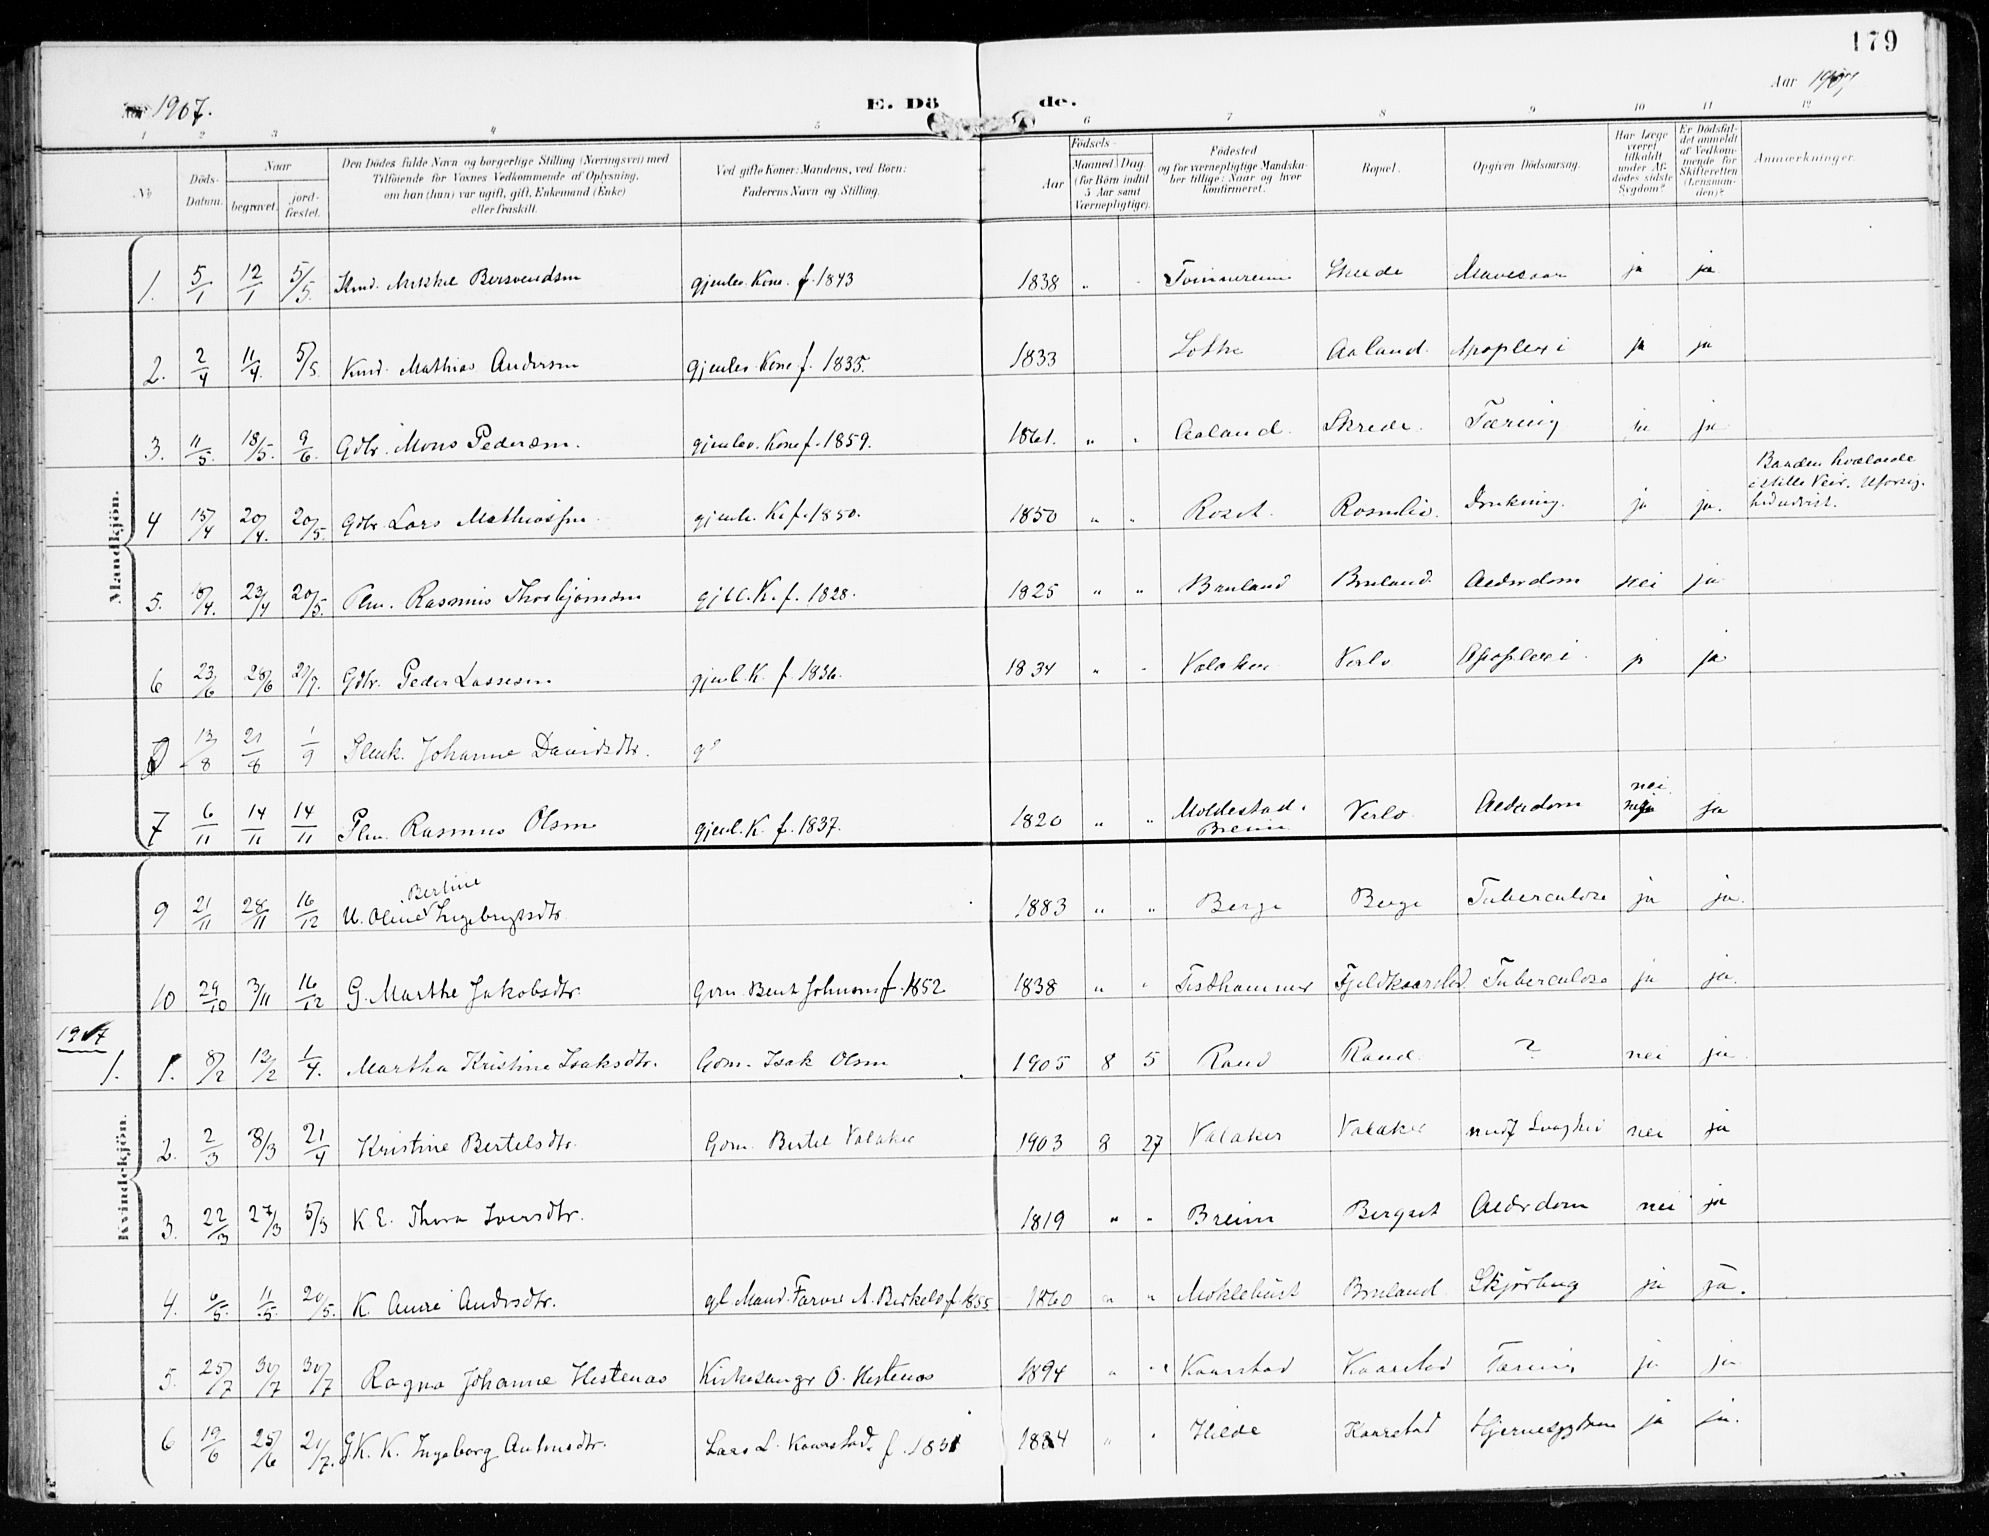 179
Aar 1907. E. Döde. Aar 1907
1 2 3 4 5 6 7 8 9 10 11 12
No
Döds-Datum.
Naar
begravet.
jord-fæstet.
Den Dödes fulde Navn og borgerlige Stilling (Næringsvei) med
Tilföiende for Voxnes Vedkommende af Oplysning,
om han (hun) var ugift, gift, Enkemand (Enke)
eller fraskilt.
Ved gifte Koner: Mandens, ved Börn:
Faderens Navn og Stilling.
Aar
Födsels-
Maaned Dag.
(for Börn indtil
5 Aar samt
Værnepligtige).
Födested
og for værnepligtige Mandska-
ber tillige: Naar og hvor
konfirmeret.
Bopæl.
Opgiven Dödsaarsag.
Har Læge
været
tilkaldt
under Af-
dödes sidste
Sygdom?
Er Dödsfal-
det anmeldt
af Vedkom-
mende for
Skifteretten
(Lensman-
den)?
Anmærkninger.
Mandkjön.
1. 5/1 12/1 5/5. Kmd. Mikkel Bersvendsen gjenlev. Kone f. 1843 1838 " " Tvinnereim Skrede Mavesaar ja ja
2. 2/4 11/4. 5/5 Kmd. Mathias Andersen gjenlev. Kone f. 1835. 1833 Lothe Aaland. Apoplexi ja ja
3. 11/5 18/5. 9/6 Gdbr. Mons Pedersen. gjenlev. Kone f. 1859. 1861. " " Aaland. Skrede. Tæring ja ja
Baaden hvælvede
i stille Veir. Uforsig-
hed udvist.
4 15/4 20/4. 20/5. Gdbr Lars Mathiassen gjenl. K. f. 1850. 1850 " " Roset. Rosnlid. Drukning. ja ja.
5. 18/4. 23/4 20/5. Plm. Rasmus Thorbjørnsen gjbl. K. f. 1828. 1825 " " Bruland Bruland. Alderdom nei ja
6 23/6 28/6 21/7. Gdbr. Peder Lassesen gjenl. K. f. 1836. 1834 " " Valaker Verlo Apoplexi. ja ja
13/8 21/8 1/9 Plmk. Johanne Davidsdtr. g
7 6/11 14/11 14/11 Plm. Rasmus Olsen gjenl. K. f. 1837. 1820 " " Moldestad. Breim Verlo. Alderdom nei ja
Kvindekjön.
9 21/11 28/11 16/12 U. Oline Bertine Ingebrigtsdtr. 1883 " " Berge Berge Tuberculose ja ja.
10 29/10 3/11 16/12 G. Marthe Jakobsdtr. Gdm. Bent Johnsen f. 1852 1838 " " Tisthammer Fjeldkaarstad Tuberculose ja ja.
1907
1. 1. 8/2 13/2 1/4. Martha Kristine Isaksdtr. Gdm. Isak Olsen 1905 8 5 Rand Rand. ? nei ja
2. 2/3 8/3 21/4 Kristine Bertelsdtr. Gdm. Bertel Valaker 1903 8 27 Valaker Valaker medf. Svaghed nei ja
3. 22/3 27/3 5/3 K. E. Thora Iversdtr. 1819 " " Breim Bergset Alderdom nei ja
4. 6/5 11/5 20/5. K. Anne Andersdtr. gl. Mand. Farver A. Birkeld f. 1855 1860 " " Myklebust Bruland. ja ja.
5. 25/7 30/7 30/7 Ragna Johanne Hestenæs Kirkesanger O. Hestenæs 1894 " " Kaarstad Kaarstad Tæring ja ja
6 19/6 25/6 21/7. G. K. K. Ingeborg Antonsdtr. Lars L. Kaarstad. f. 1831 1834 " " Hilde Kaarstad Hjernesygdom ja ja.